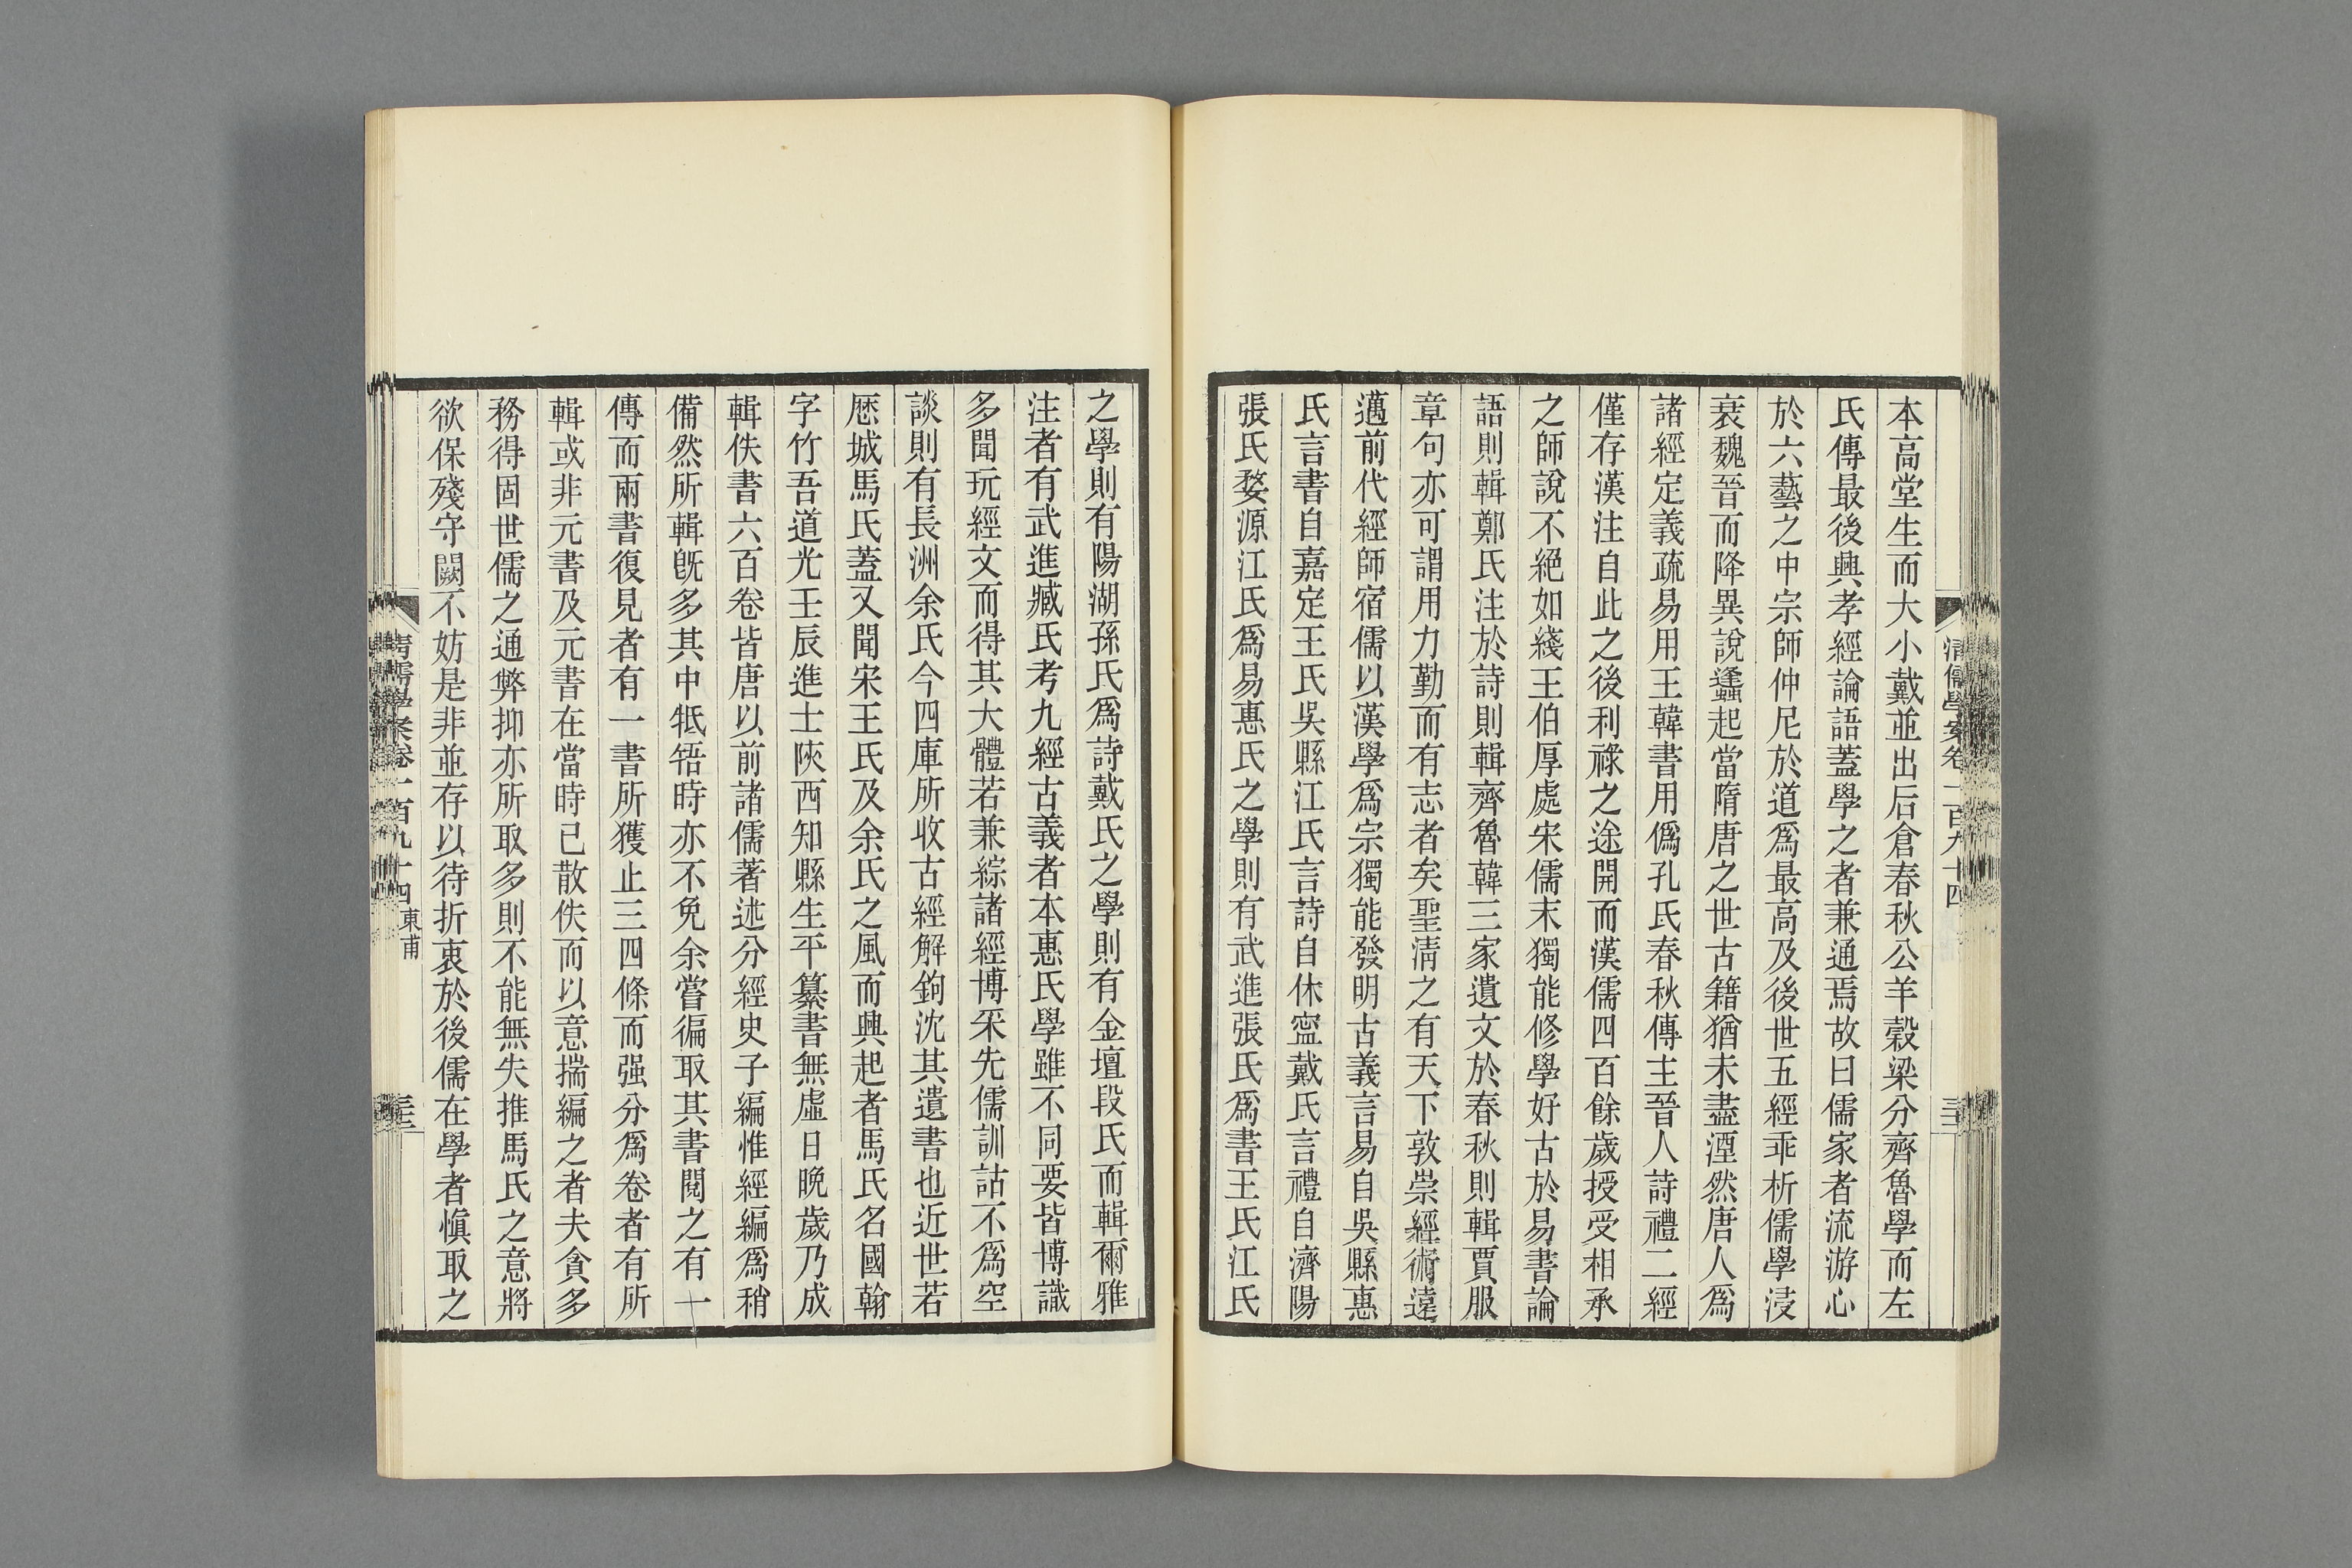 本高堂生而大小戴並出后倉春秋公羊穀梁分齊魯學而左
氏傳最後興孝經論語蓋學之者兼通焉故曰儒家者流游心
於六藝之中宗師仲尼於道爲最高及後世五經乖析儒學浸
衰魏晉而降異說蠭起當隋唐之世古籍猶未盡湮然唐人爲
諸經定義疏易用王韓書用僞孔氏春秋傳主晉人詩禮二經
僅存漢注自此之後利祿之途開而漢儒四百餘歲授受相承
之師說不絕如綫王伯厚處宋儒末獨能修學好古於易書論
語則輯鄭氏注於詩則輯齊魯韓三家遺文於春秋則輯賈服
章句亦可謂用力勤而有志者矣聖清之有天下敦崇經術遠
邁前代經師宿儒以漢學爲宗獨能發明古義言易自吳縣惠
氏言書自嘉定王氏吳縣江氏言詩自休寍戴氏言禮自濟陽
張氏婺源江氏爲易惠氏之學則有武進張氏爲書王氏江氏
清儒學案卷一百九十四
之學則有陽湖孫氏爲詩戴氏之學則有金壇段氏而輯爾雅
注者有武進臧氏考九經古義者本惠氏學雖不同要皆博識
多聞玩經文而得其大體若兼綜諸經博采先儒訓詁不爲空
談則有長洲余氏今四庫所收古經解鉤沈其遺書也近世若
歷城馬氏蓋又聞宋王氏及余氏之風而興起者馬氏名國翰
字竹吾道光壬辰進士陝西知縣生平纂書無虛日晚歲乃成
輯佚書六百卷皆唐以前諸儒著述分經史子編惟經編爲稍
備然所輯旣多其中牴牾時亦不免余嘗徧取其書閱之有一
傳而兩書復見者有一書所獲止三四條而强分爲卷者有所
輯或非元書及元書在當時已散佚而以意揣編之者夫貪多
務得固世儒之通弊抑亦所取多則不能無失推馬氏之意將
欲保殘守闕不妨是非並存以待折衷於後儒在學者愼取之
清儒學案卷一百九十四 東甫